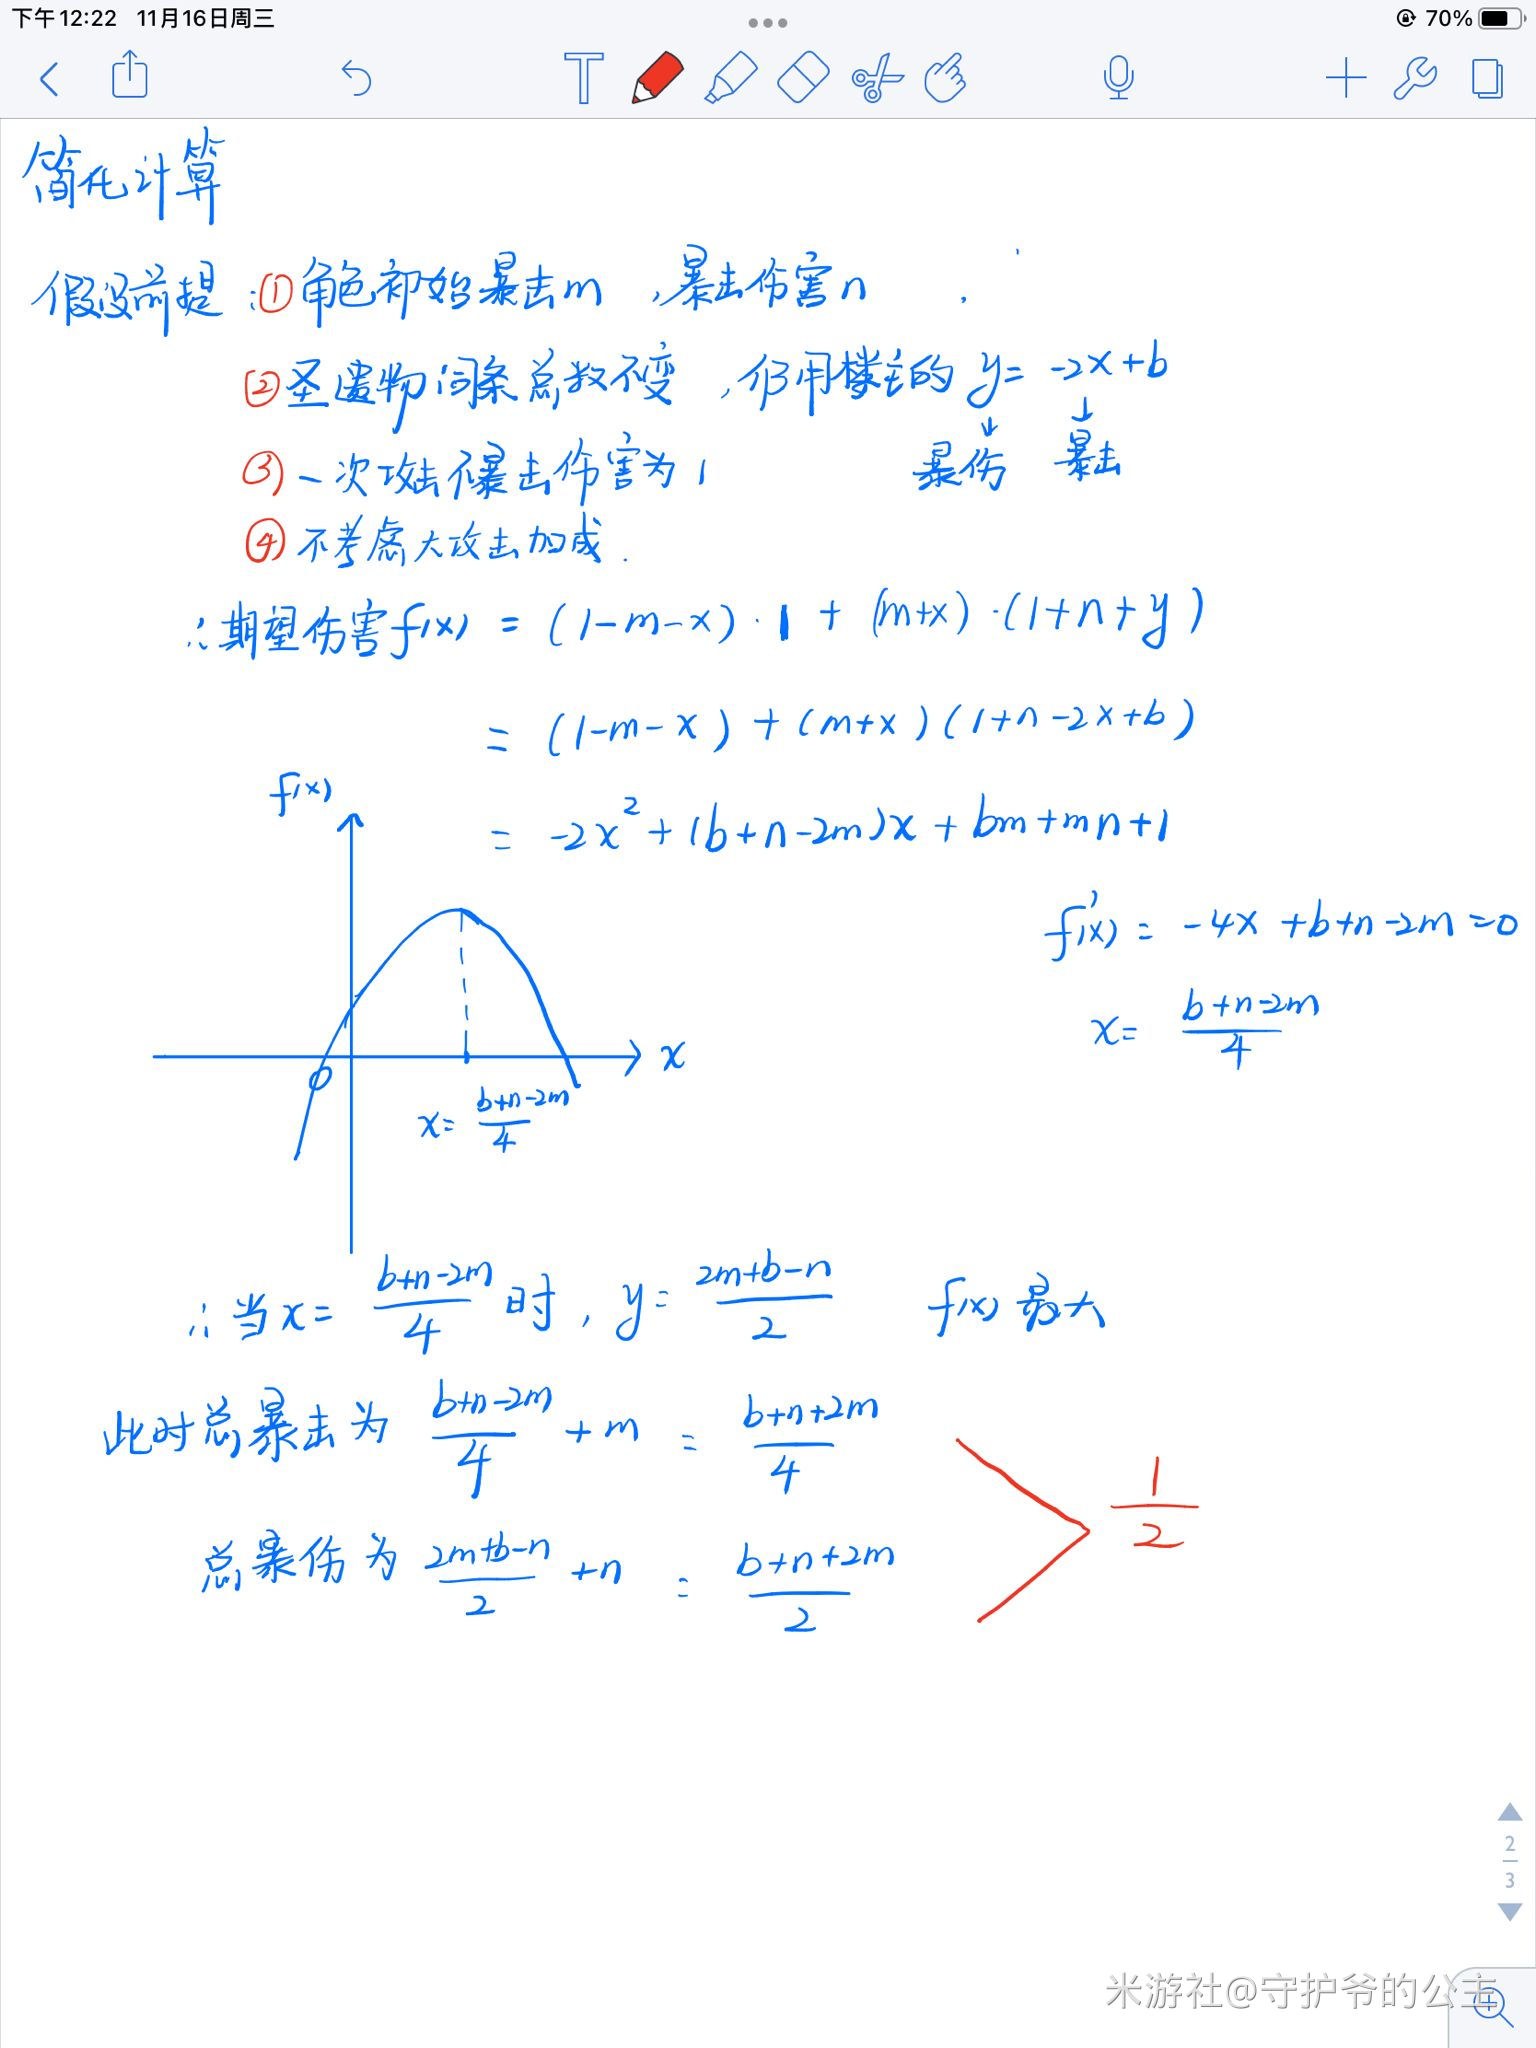 下午12:22 11月16日周三
70%
T
简化计算
假设前提:①角色初始暴击m,暴击伤害n,
②圣遗物词条总数不变,仍用楼主的 y= -2x+b
↓ ↓
暴伤 暴击
③一次攻击不暴击伤害为1
④不考虑大攻击加成.
∴期望伤害f(x) = (1-m-x)·1 + (m+x)·(1+n+y)
= (1-m-x)+(m+x)(1+n-2x+b)
f(x)
= -2x²+(b+n-2m)x+bm+mn+1
f'(x) = -4x+b+n-2m=0
x= (b+n-2m)/4
0 x
x= (b+n-2m)/4
∴当x= (b+n-2m)/4 时, y= (2m+b-n)/2 f(x)最大
此时总暴击为 (b+n-2m)/4 +m = (b+n+2m)/4
1/2
总暴伤为 (2m+b-n)/2 +n = (b+n+2m)/2
2
3
米游社@守护爷的公主